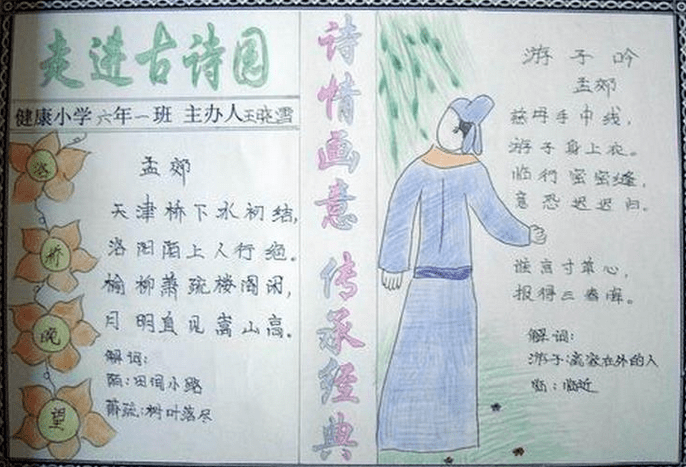 走进古诗园
健康小学六年一班 主办人王晓雪
洛
桥
晚
望
孟郊
天津桥下水初结,
洛阳陌上人行绝。
榆柳萧疏楼阁闲,
月明直见嵩山高。
解词:
陌:田间小路
萧疏:树叶落尽
诗情画意 传承经典
游子吟
孟郊
慈母手中线,
游子身上衣。
临行蜜蜜缝,
意恐迟迟归。
谁言寸草心,
报得三春晖。
解词:
游子:离家在外的人
临:临近